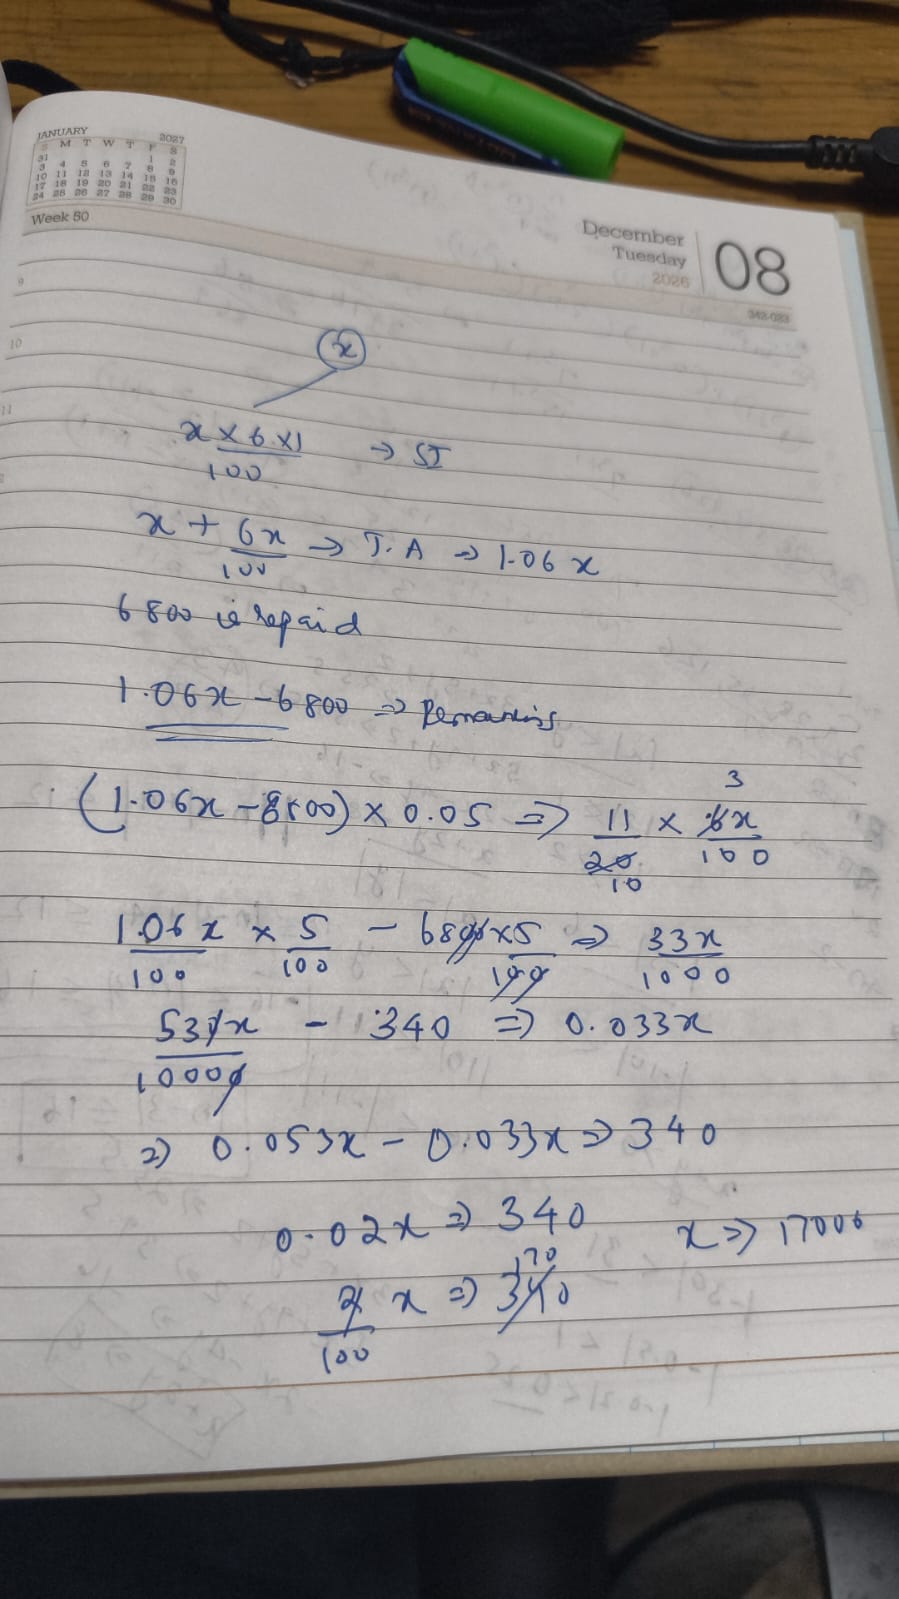 JANUARY 2027
S M T W T F S
31 1 2
3 4 5 6 7 8 9
10 11 12 13 14 15 16
17 18 19 20 21 22 23
24 25 26 27 28 29 30
Week 50
December
Tuesday
2026
08
342-023
9
10
11
x
x × 6 × 1 / 100 → SI
x + 6x / 100 → T.A → 1.06 x
6800 is repaid
1.06x - 6800 => Remaining
(1.06x - 8800) × 0.05 => 11 / 20 10 × 6x 3 / 100
1.06 x / 100 × 5 / 100 - 6800 × 5 / 100 => 33x / 1000
530x / 10000 - 340 => 0.033x
=> 0.053x - 0.033x => 340
0.02x => 340 x => 17000
2 / 100 x => 340 170